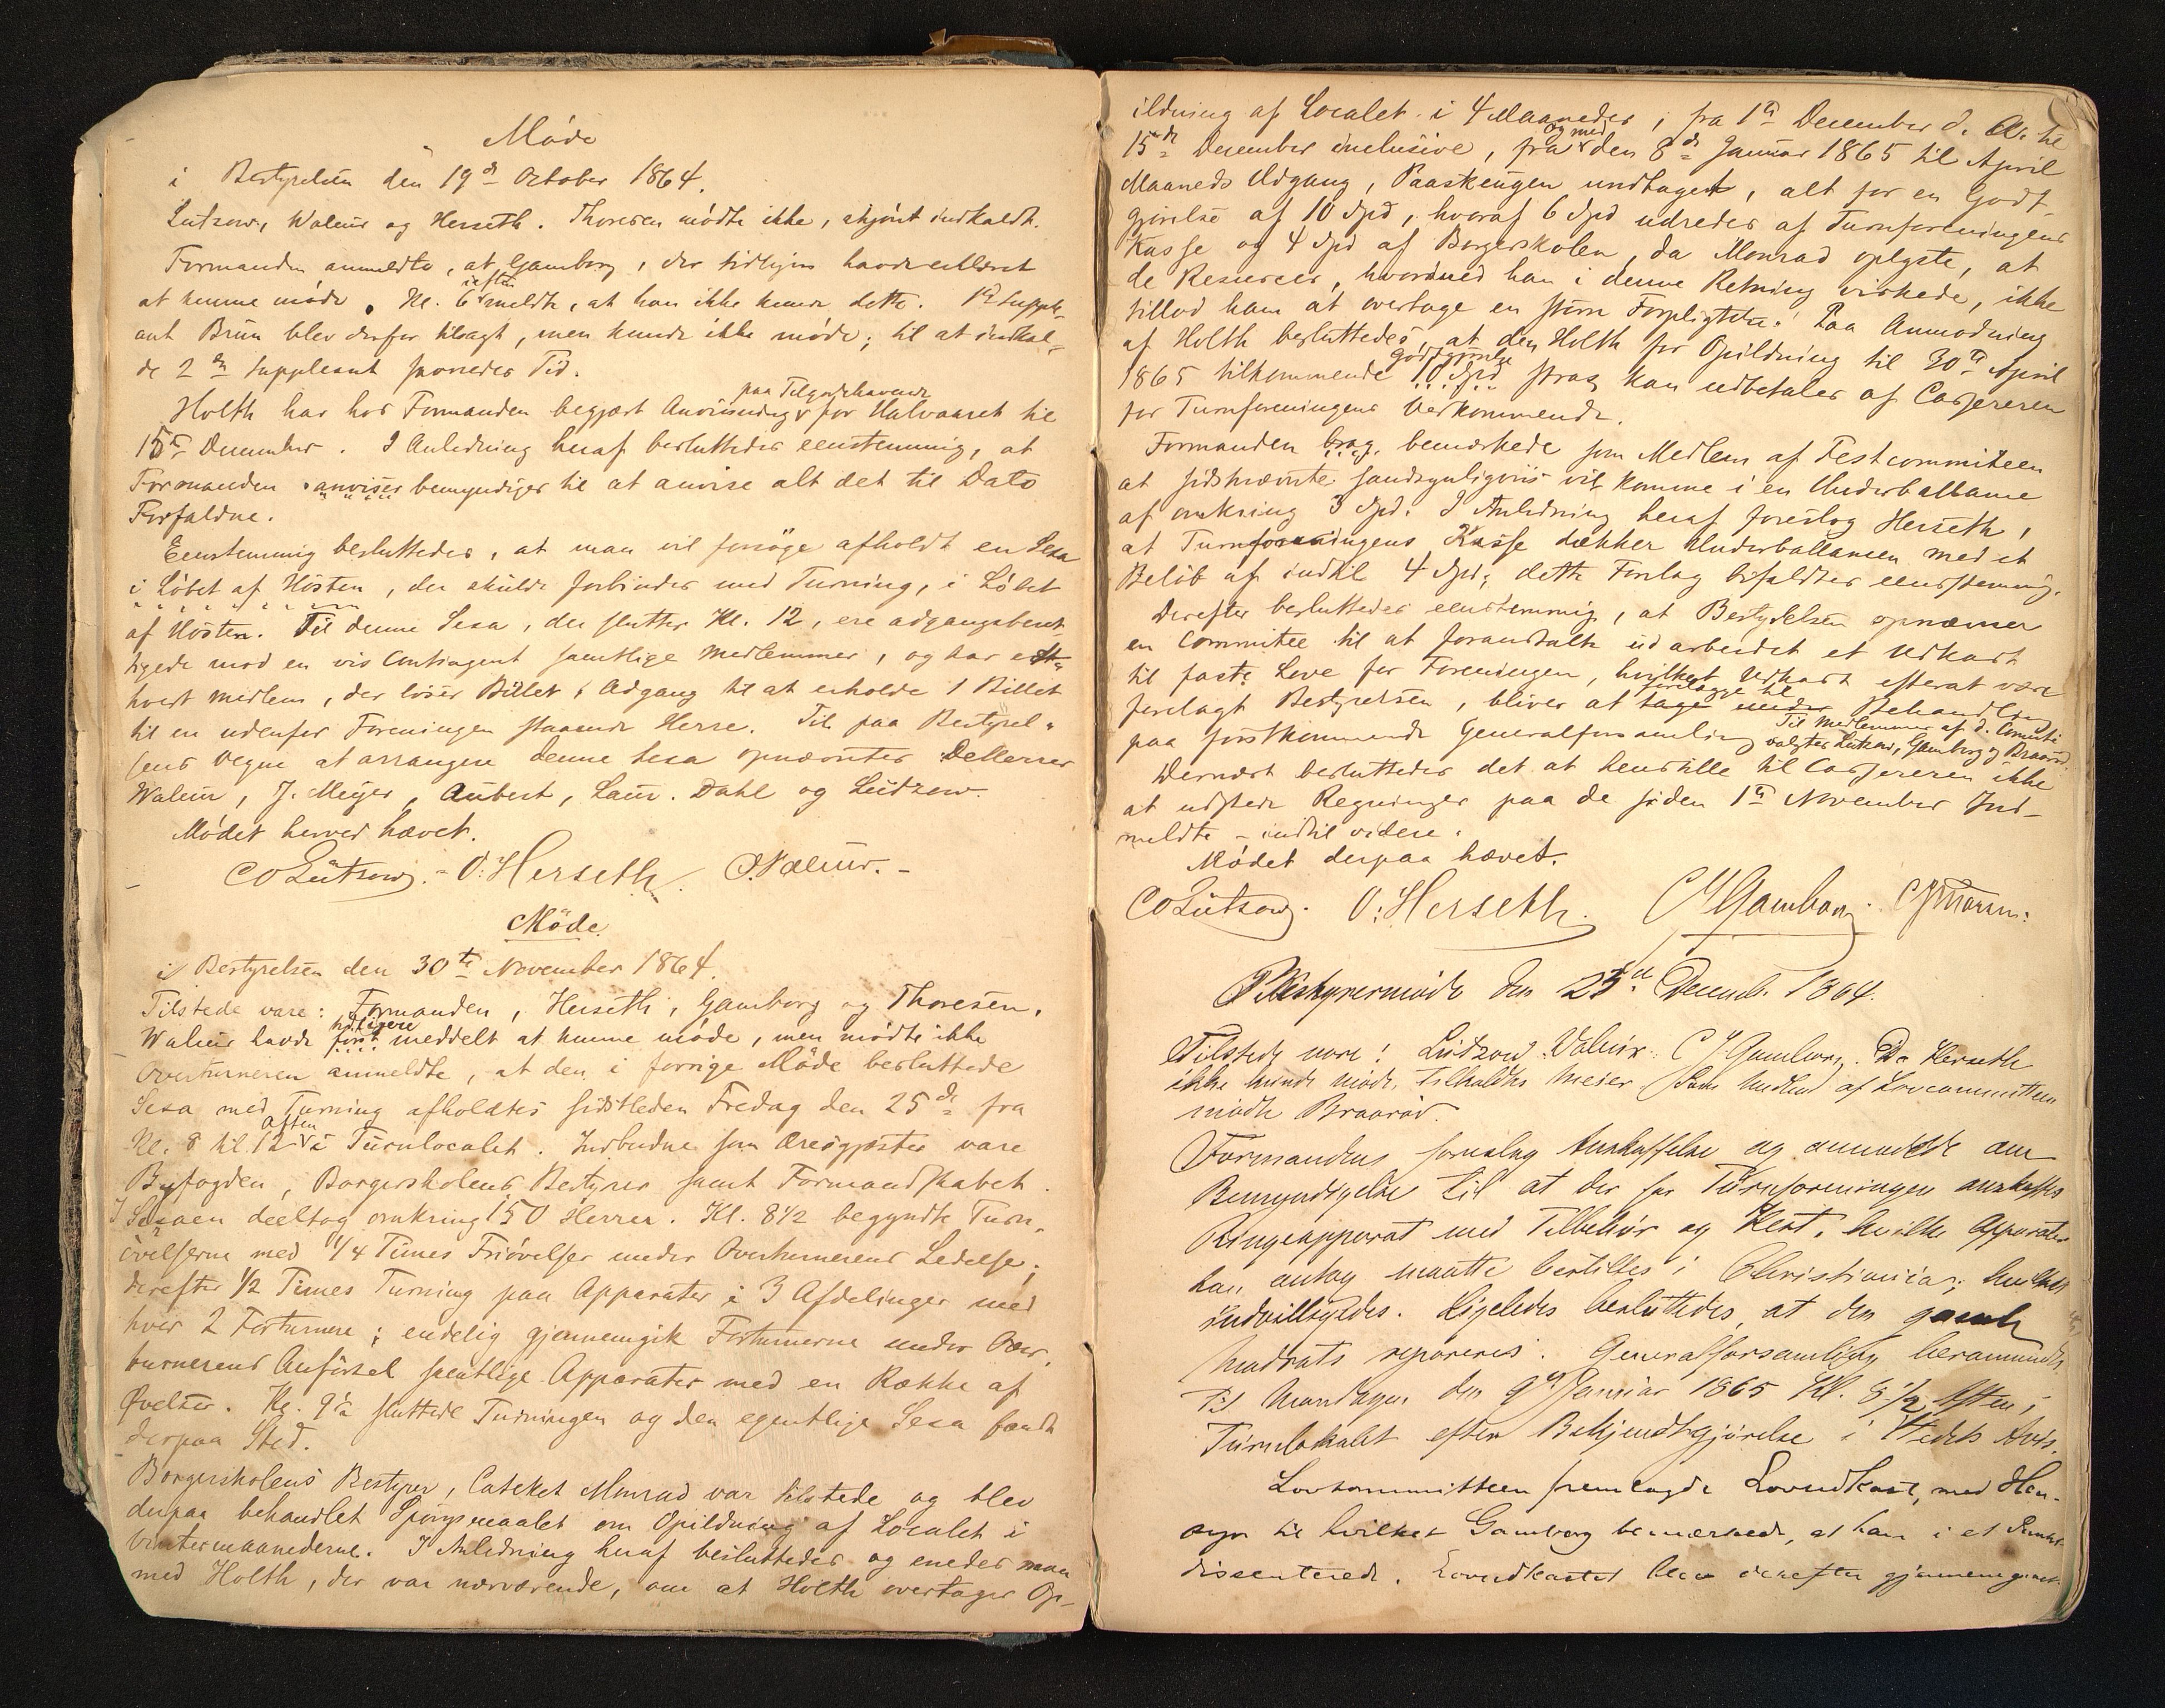 Møde
i Bestyrelsen den 19de October 1864.
Lutzow, Waleur og Herseth. Thoresen mødte ikke, skjønt indkaldt.
Formanden anmeldte, at Gamborg, der tidligere havde erklæret
at kunne møde, Kl. 6 meldte, at han ikke kunde dette. 1ste Supple-
ant Brun blev derfor tilsagt, men kunde ikke møde; til at indkal-
de 2den Suppleant savnedes Tid.
paa Tilgodehavende
Holth har hos Formanden begjært Anviisning for Halvaaret til
15de December. I Anledning heraf besluttedes eenstemmig, at
Formanden anviser bemyndiges til at anvise alt det til Dato
Forfaldne.
Eenstemmig besluttedes, at man vil forsøge afholdt en Sexa
i Løbet af Høsten, der skulde forbindes med Turning, i Løbet
af Høsten. Til denne Sexa, der slutter Kl. 12, ere adgangsberet-
tigede mod en vis Contingent samtlige Medlemmer, og har et-
hvert Medlem, der løser Billet, Adgang til at erholde 1 Billet
til en udenfor Foreningen staaende Herre. Til paa Bestyrel-
sens Vegne at arrangere denne Sexa opnævntes DeHerrer
Waleur, J. Meyer, Aubert, Laur. Dahl og Lützow.
Mødet herved hævet.
CO Lützow. O. Herseth. Waleur.
Møde
i Bestyrelsen den 30te November 1864.
Tilstede vare: Formanden, Herseth, Gamborg og Thoresen.
tidligere
Waleur havde først meddelt at kunne møde, men mødte ikke
Overturneren anmeldte, at den i forrige Møde besluttede
Sexa med Turning afholdtes sidstleden Fredag den 25de fra
Aften
Kl. 8 til 12 i Turnlocalet. Indbudne som Æresgjæster vare
Byfogden, Borgerskolens Bestyrer samt Formandskabet.
I Sexaen deeltog omkring 150 Herrer. Kl. 8 1/2 begyndte Turn-
øvelserne med 1/4 Times Friøvelser under Overturnerens Ledelse;
derefter 1/2 Times Turning paa Apparater i 3 Afdelinger med
hver 2 Forturnere; endelig gjennemgik Forturnerne under Over-
turnerens Anførsel samtlige Apparater med en Række af
Øvelser. Kl. 9 1/2 sluttede Turningen og den egentlige Sexa fandt
derpaa Sted.
Borgerskolens Bestyrer, Cateket Monrad var tilstede og blev
derpaa behandlet Spørgsmaalet om Opildning af Localet i
Vintermaanederne. I Anledning heraf besluttedes og enedes man
med Holth, der var nærværende, om at Holth overtager Op-
ildning af Localet i 4 Maaneder, fra 1ste December d. A. til
og med
15de December inclusive, fra den 8de Januar 1865 til April
Maaneds Udgang, Paaskeugen undtaget, alt for en Godt-
gjørelse af 10 Spd, hvoraf 6 Spd udredes af Turnforeningens
Kasse og 4 Spd af Borgerskolen, da Monrad oplyste, at
de Resurcer, hvormed han i denne Retning virkede, ikke
tillod ham at overtage en større Forpligtelse. Paa Anmodning
af Holth besluttedes, at den Holth for Opildning til 30te April
Godtgjørelse
1865 tilkommende 10 Spd strax kan udbetales af Cassereren
for Turnforeningens Vedkommende.
Formanden bemærkede som Medlem af Festcommiteen
at sidstnævnte sandsynligviis vil komme i en Underballance
af omkring 3 Spd. I Anledning heraf foreslog Herseth,
at Turnforeningens Kasse dækker Underballancen med et
Beløb af indtil 4 Spd; dette Forslag bifaldtes eenstemmig.
Derefter besluttedes eenstemmig, at Bestyrelsen opnævner
en Committee til at foranstalte udarbeidet et Udkast
til faste Love for Foreningen, hvilket Udkast efterat være
forelægge til
forelagt Bestyrelsen, bliver at tage under Behandling
paa førstkommende Generalforsamling Til Medlemmer af d. Comite
valgtes Lützow, Gamborg og Braarød.
Dernæst besluttedes det at henstille til Cassereren ikke
at udstede Regninger paa de siden 1ste November Ind-
meldte – indtil videre.
Mødet derpaa hævet.
CO Lützow. O. Herseth. C Gamborg.
Bestyrermøde den 23de Decemb. 1864.
Tilstede vare: Lützow. Valeur. C Gamborg. Da Herseth
ikke kunde møde, tilkaldtes Meier. Som Medlem af Lovcommitteen
mødte Braarød.
Formanden foreslog Anskaffelse og anmodede om
Bemyndigelse til at der for Turnforeningen anskaffes
Ringeapparat med Tilbehør og Hest, hvilke Apparater
han antog maatte bestilles i Christiania; hvilket
indvilligedes. Ligeledes besluttedes, at den gamle
Madrats repareres. Generalforsamling beramm​edes
til Mandagen den 9de Januar 1865 Kl. 8 1/2 Aften i
Turnlokalet efter Bekjendtgjørelse i Stedets Avis.
Lovkommitteen fremlagde Lovudkast, med Hen-
syn til hvilket Gamborg bemærkede, at han i et Punkt
dissenterede. Lovudkastet blev derefter gjennemgaaet